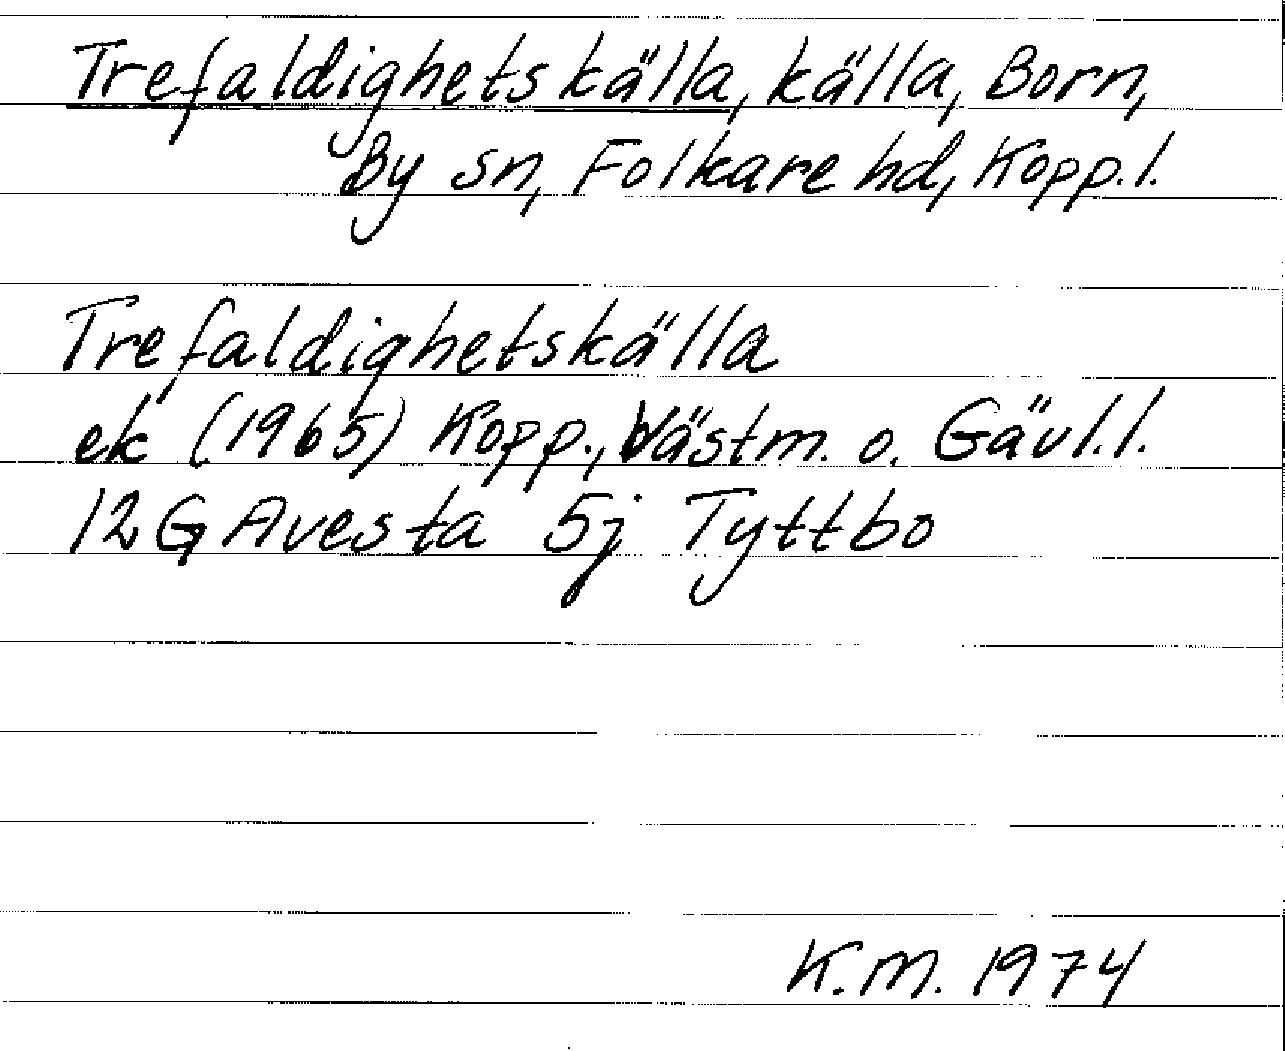 Trefaldighetskälla, källa, Born,
By sn, Folkare hd, Kopp.l.
Trefaldighetskälla
ek (1965) Kopp., Västm. o. Gävl.l.
12G Avesta 5j Tyttbo
K.M. 1974